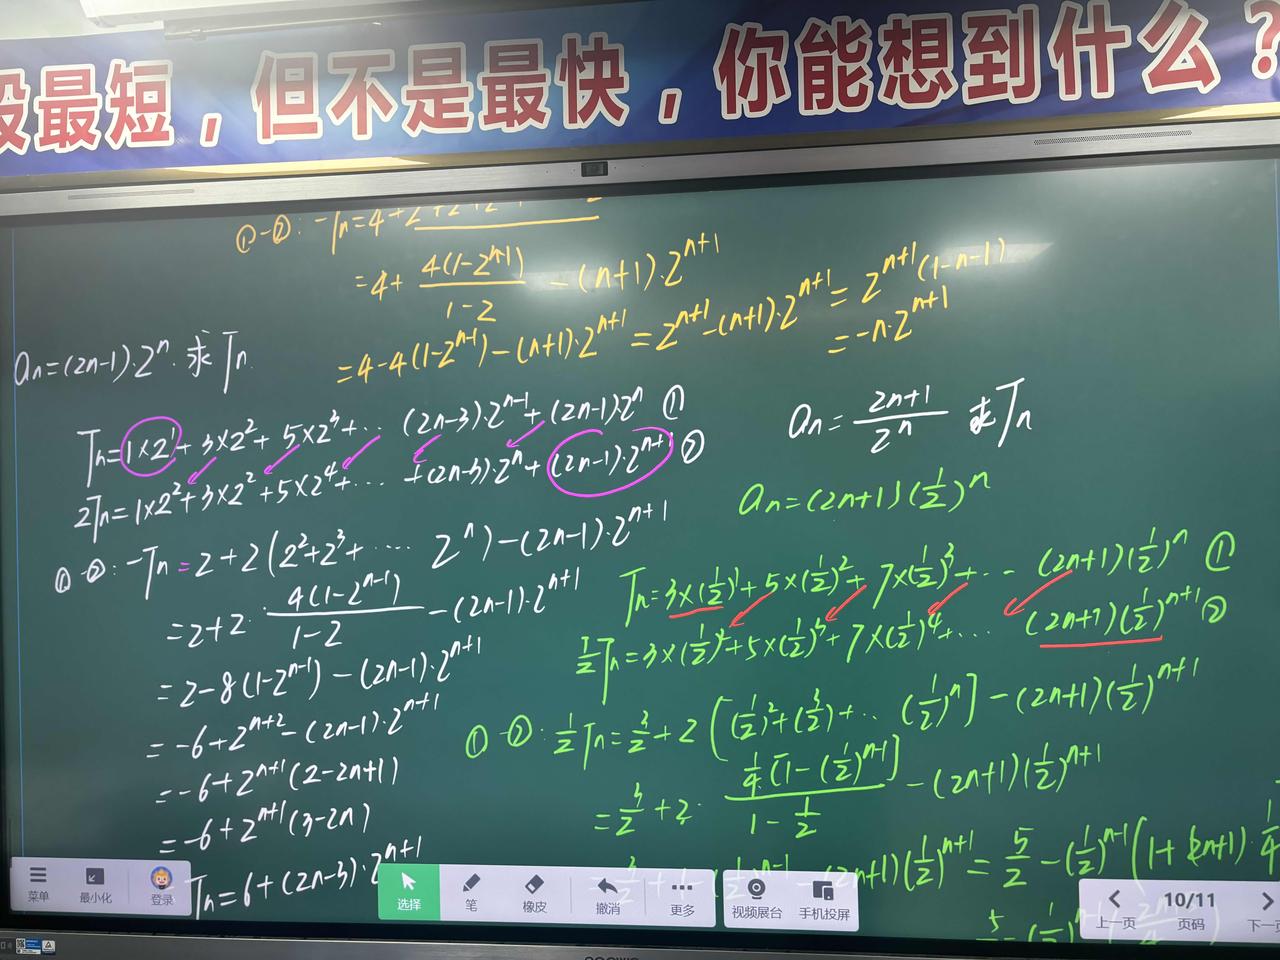 段最短，但不是最快，你能想到什么？
①-②: -Tn=4+2
=4+ 4(1-2^{n-1})/(1-2) -(n+1)·2^{n+1}
=4-4(1-2^{n-1})-(n+1)·2^{n+1}=2^{n+1}-(n+1)·2^{n+1}=2^{n+1}(1-n-1)
=-n·2^{n+1}
an=(2n-1)·2^n. 求Tn.
Tn=1×2^1+3×2^2+5×2^3+… (2n-3)·2^{n-1}+(2n-1)2^n ①
2Tn=1×2^2+3×2^2+5×2^4+… +(2n-3)·2^n+(2n-1)·2^{n+1} ②
①-②: -Tn=2+2(2^2+2^3+… 2^n)-(2n-1)·2^{n+1}
=2+2· 4(1-2^{n-1})/(1-2) -(2n-1)·2^{n+1}
=2-8(1-2^{n-1})-(2n-1)·2^{n+1}
=-6+2^{n+2}-(2n-1)·2^{n+1}
=-6+2^{n+1}(2-2n+1)
=-6+2^{n+1}(3-2n)
Tn=6+(2n-3)·2^{n+1}
an= (2n+1)/2^n 求Tn
an=(2n+1)(1/2)^n
Tn=3×(1/2)^1+5×(1/2)^2+7×(1/2)^3+… (2n+1)(1/2)^n ①
1/2Tn=3×(1/2)^2+5×(1/2)^3+7×(1/2)^4+… (2n+1)(1/2)^{n+1} ②
①-②: 1/2Tn=3/2+2[(1/2)^2+(3/2)+… (1/2)^n]-(2n+1)(1/2)^{n+1}
=3/2+2· 1/4[1-(1/2)^{n-1}]/(1-1/2) -(2n+1)(1/2)^{n+1}
(2n+1)(1/2)^{n+1}=5/2-(1/2)^{n-1}(1+(2n+1)·1/4
菜单
最小化
登录
选择
笔
橡皮
撤消
更多
视频展台
手机投屏
上一页
10/11
页码
下一